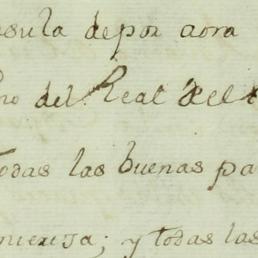 sula depor aora
del Real de
Todas las buenas pa
y todas las